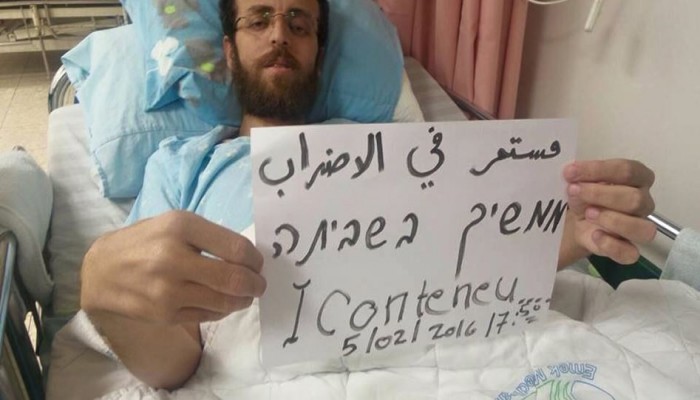 مستمر في الاضراب
ממשיך בשביתה
I Conteneu
5/02/2016 17:50
Emek Med